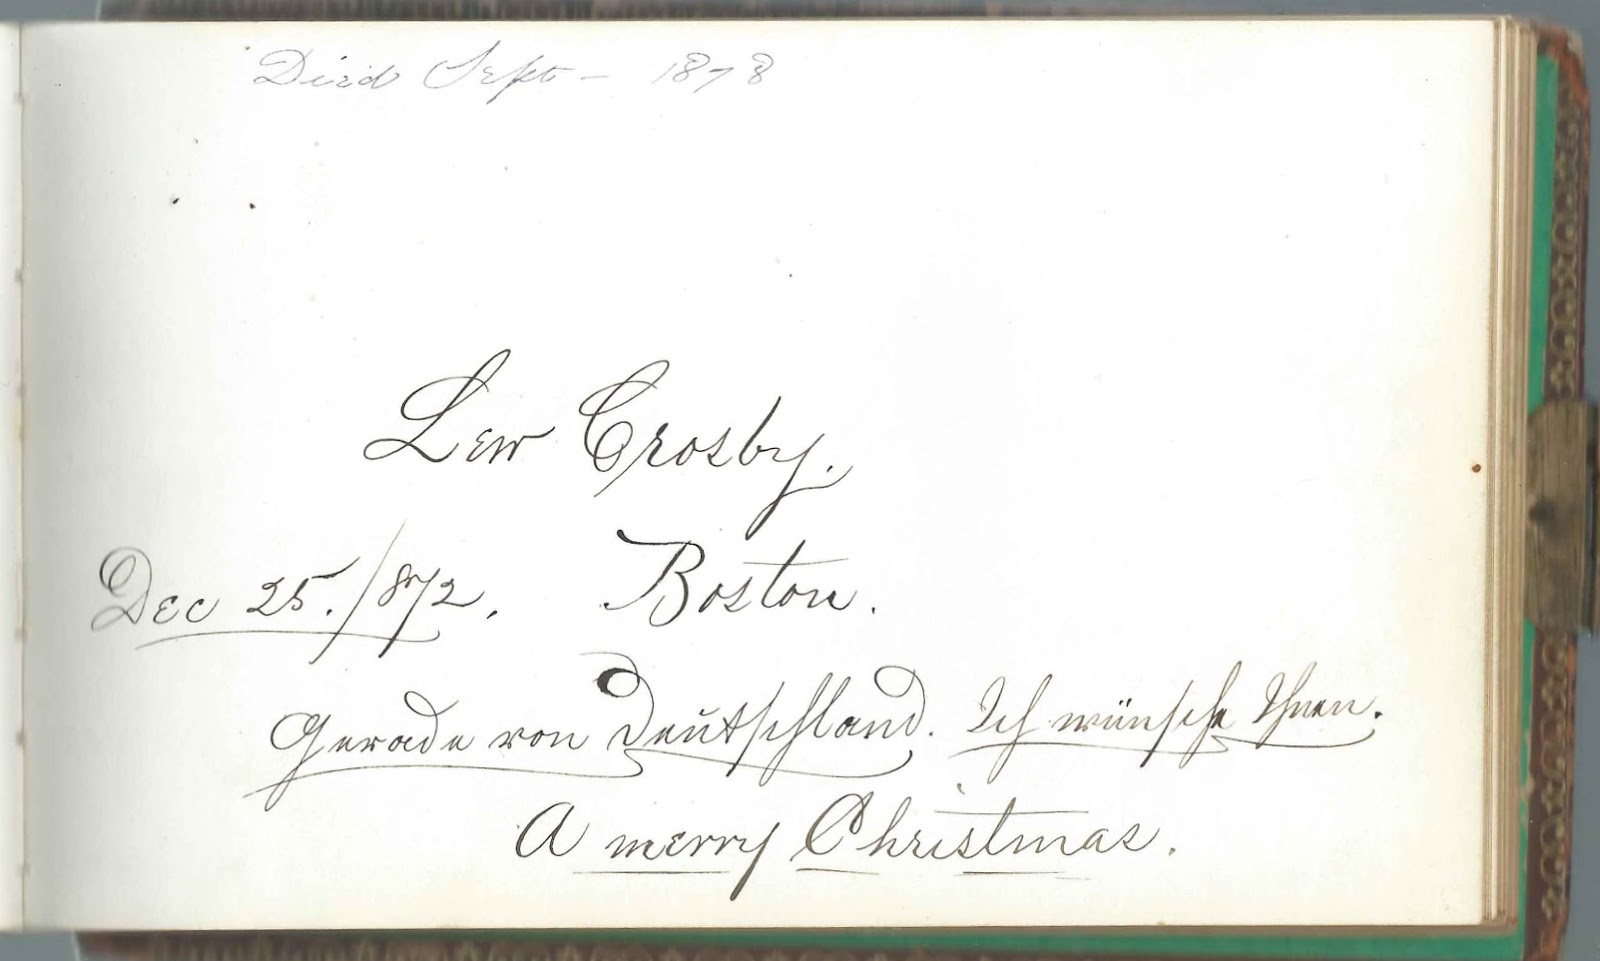 Died Sept – 1878
Lew Crosby.
Dec 25. /872. Boston.
Gerade von Deutschland. Ich wünsche Ihnen.
A merry Christmas.